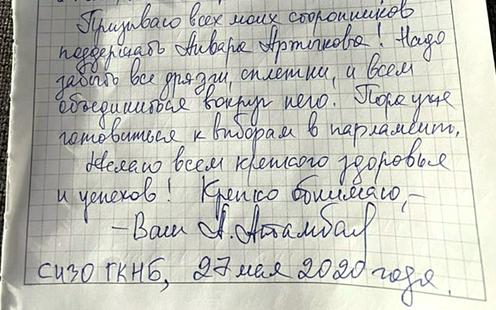 Призываю всех моих сторонников
поддержать Анвара Артыкова! Надо
забыть все дрязги, сплетни, и всем
объединиться вокруг него. Пора уже
готовиться к выборам в парламент.
Желаю всем крепкого здоровья
и успехов! Крепко обнимаю,–
– Ваш А. Атамбаев
СИЗО ГКНБ, 27 мая 2020 года.